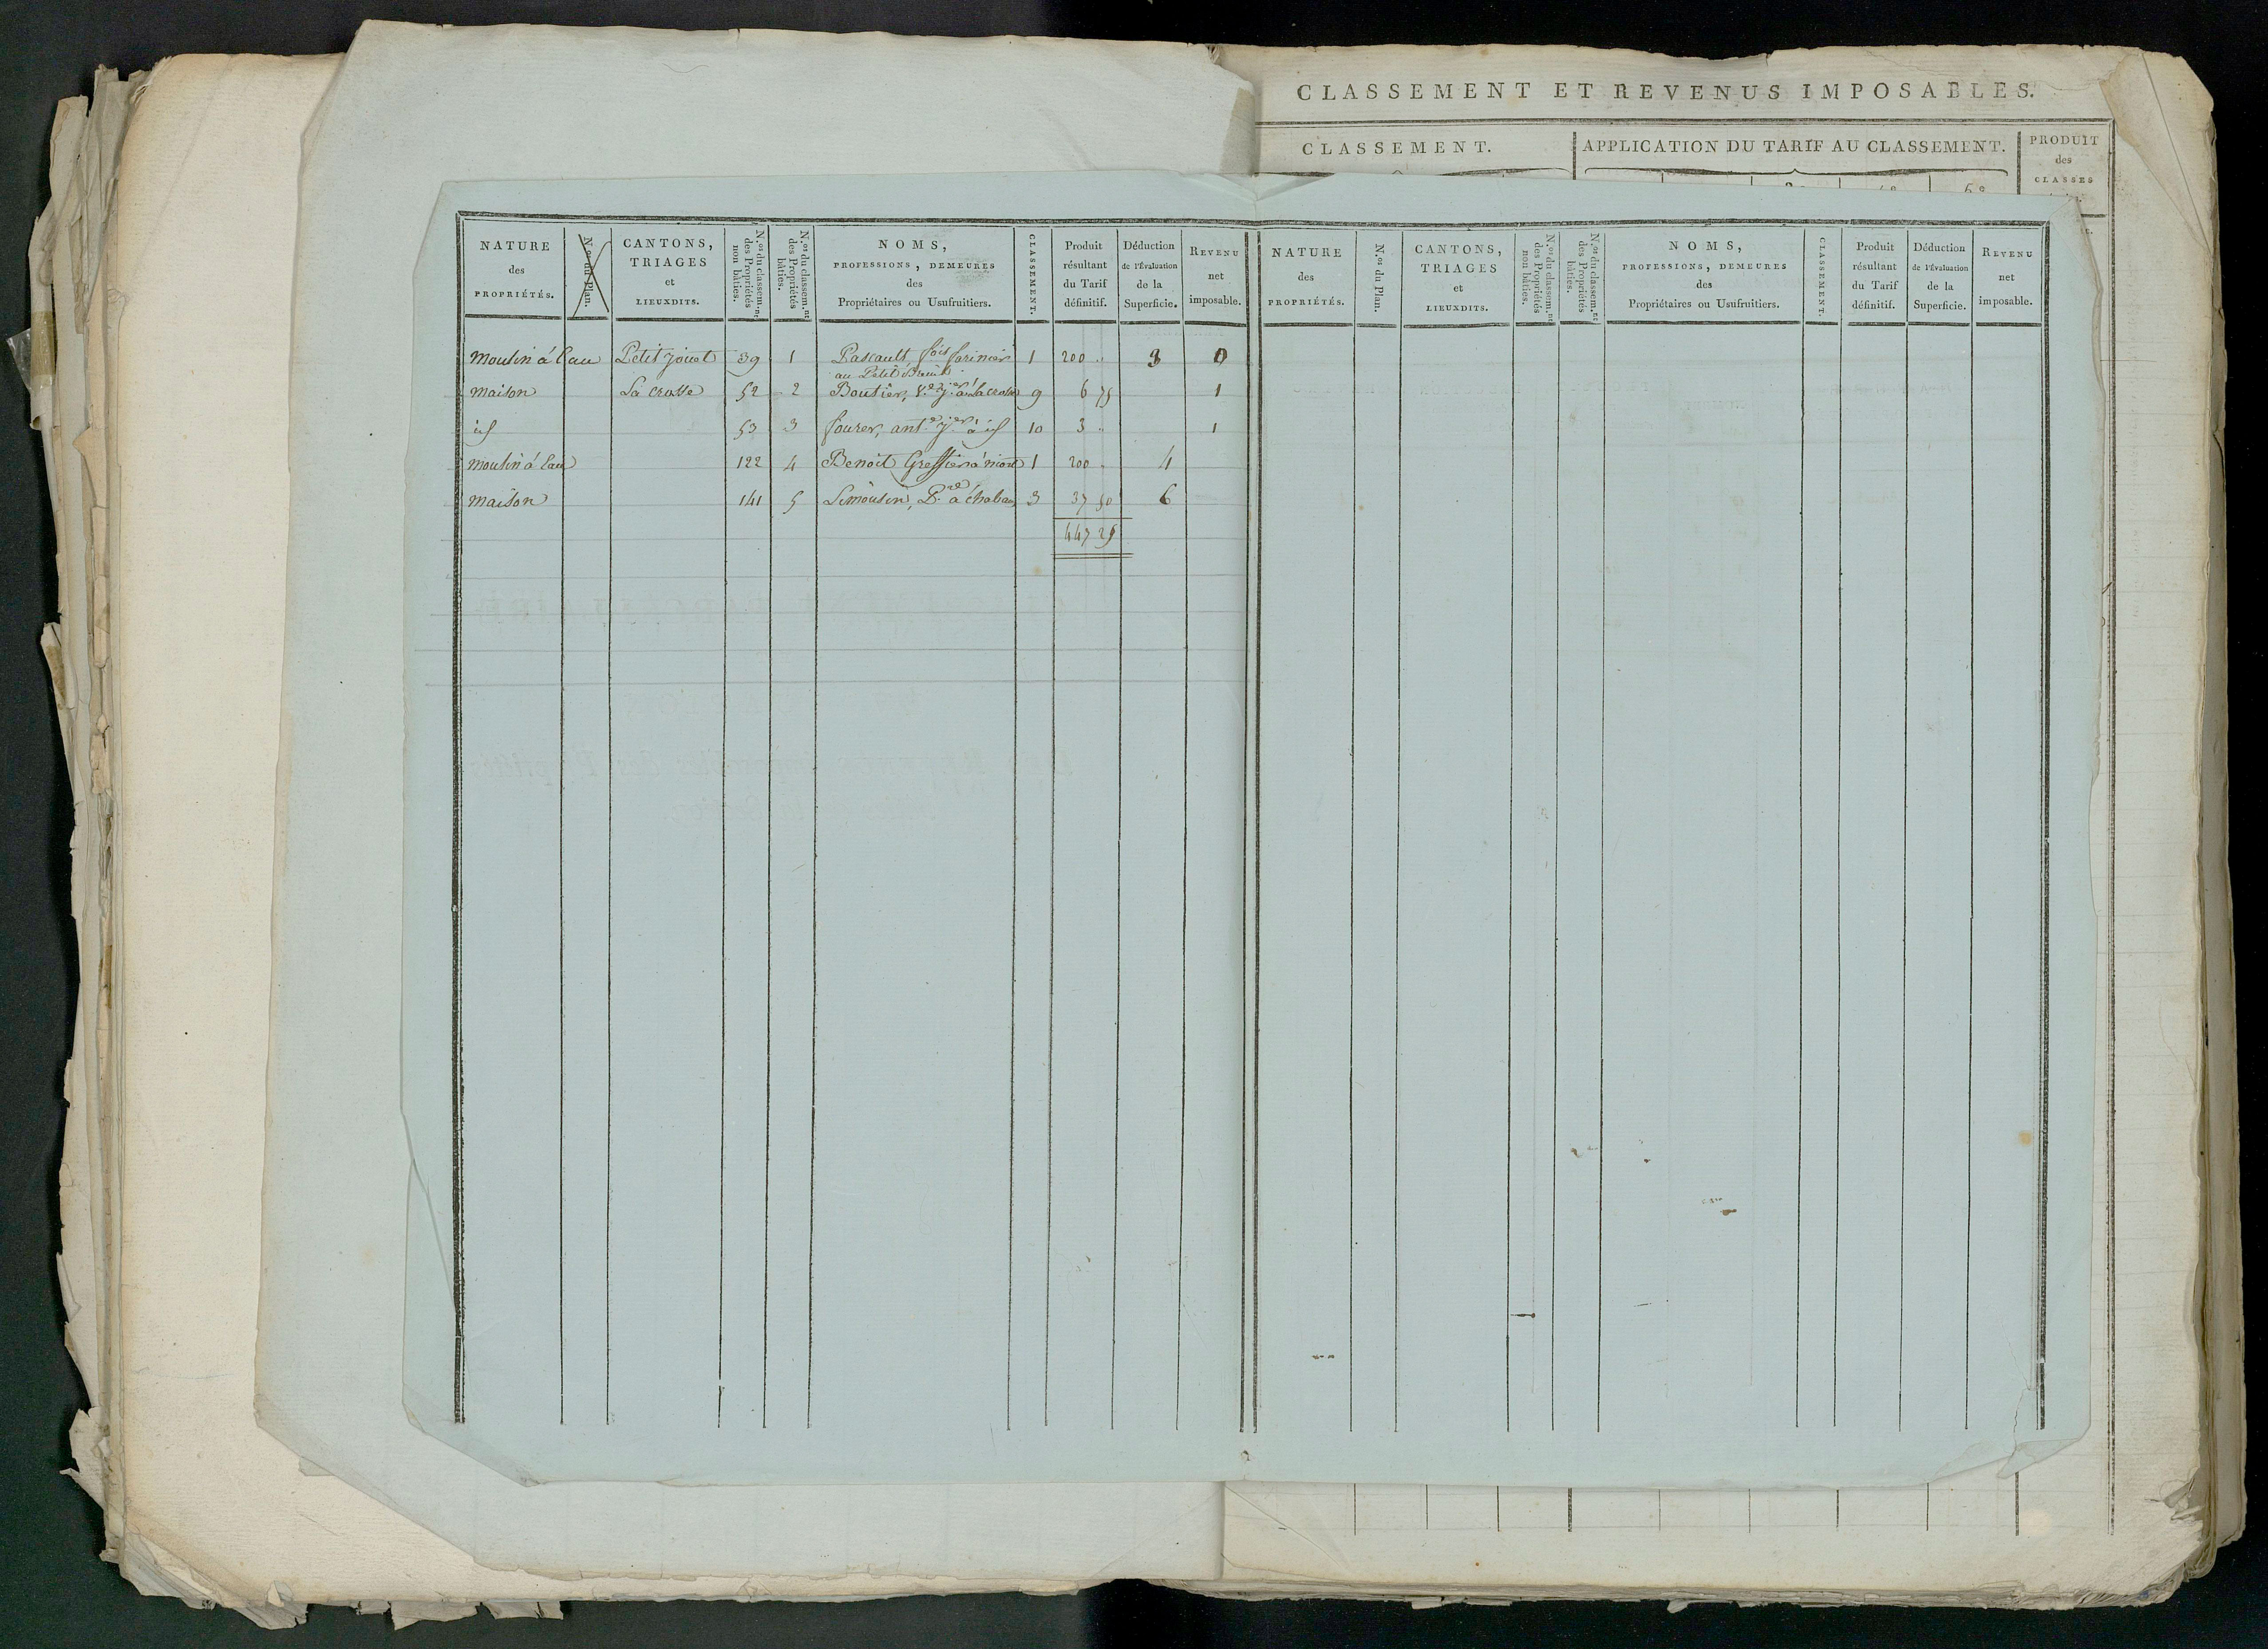 CLASSEMENT ET REVENUS IMPOSABLES.
CLASSEMENT. APPLICATION DU TARIF AU CLASSEMENT. PRODUIT des CLASSES
NATURE des PROPRIÉTÉS. N.os du Plan. CANTONS, TRIAGES et LIEUXDITS. N.os du classem.nt des Propriétés non bâties. N.os du classem.nt des Propriétés bâties. NOMS, PROFESSIONS, DEMEURES des Propriétaires ou Usufruitiers. CLASSEMENT. Produit résultant du Tarif définitif. Déduction de l'Évaluation de la Superficie. REVENU net imposable.
NATURE des PROPRIÉTÉS. N.os du Plan. CANTONS, TRIAGES et LIEUXDITS. N.os du classem.nt des Propriétés non bâties. N.os du classem.nt des Propriétés bâties. NOMS, PROFESSIONS, DEMEURES des Propriétaires ou Usufruitiers. CLASSEMENT. Produit résultant du Tarif définitif. Déduction de l'Évaluation de la Superficie. REVENU net imposable.
Moulin à l'eau Petit jouet 39 1 Pascault, fois farinier 1 200 " 3 0
au Petit Breuil
maison La crosse 52 2 Boutier, V.e j.er à la crosse 9 6 75 1
id 53 3 fourer, ant.e j.er à id 10 3 " 1
moulin à l'eau 122 4 Benoit Greffier à niort 1 200 " 4
maison 141 5 Limousin, P.re à chaban 3 37 50 6
447 25